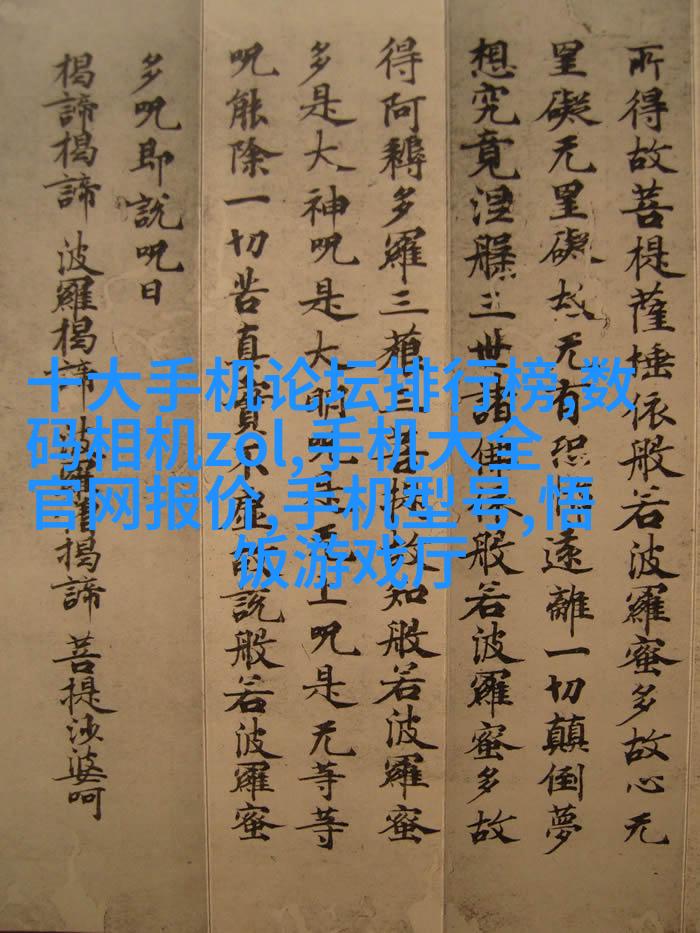 所得故菩提薩埵依般若波羅蜜多故心无
罣礙无罣礙故无有恐遠離一切顛倒夢
想究竟涅槃三世諸佛依般若波羅蜜多故
得阿耨多羅三藐三菩提故知般若波羅蜜
多是大神呪是大明呪是无上呪是无等等
呪能除一切苦真實不虛故說般若波羅蜜
多呪即說呪曰
揭諦揭諦 波羅揭諦 波羅揭諦 菩提沙婆呵
十大手机论坛排行榜,数
码相机zol,手机大全
官网报价,手机型号,悟
饭游戏厅